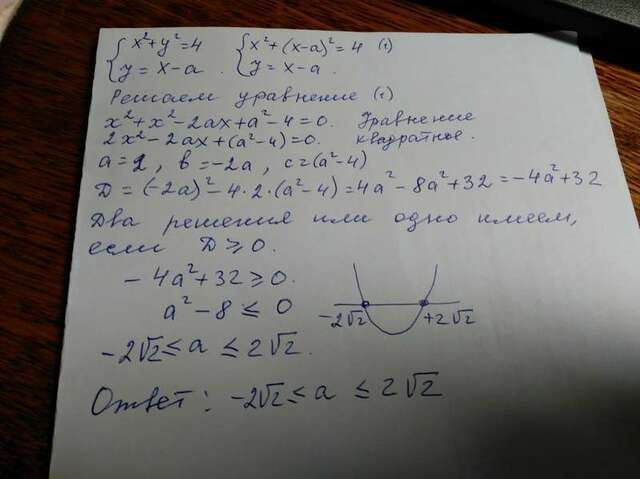 { x² + y² = 4 { x² + (x-a)² = 4 (1)
{ y = x - a . { y = x - a .
Решаем уравнение (1)
x² + x² - 2ax + a² - 4 = 0. Уравнение
2x² - 2ax + (a² - 4) = 0. квадратное.
a = 2, b = -2a, c = (a² - 4)
D = (-2a)² - 4·2·(a² - 4) = 4a² - 8a² + 32 = -4a² + 32
Два решения или одно имеем,
если D ≥ 0.
- 4a² + 32 ≥ 0.
a² - 8 ≤ 0
-2√2 +2√2
-2√2 ≤ a ≤ 2√2.
Ответ: -2√2 ≤ a ≤ 2√2